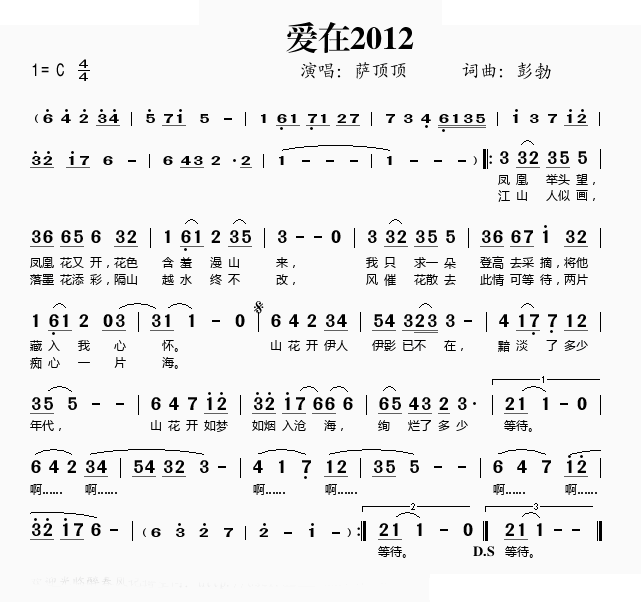 爱在2012
1= C 4/4 演唱：萨顶顶 词曲：彭勃
( 6 4 2 34 | 5 71 5 - | 1 61 71 27 | 7 3 4 6135 | i 3 7 i2 |
32 17 6 - | 6 43 2 · 2 | 1 - - - | 1 - - - ) ‖: 3 32 35 5 |
凤 凰 举头 望，
江 山 人似 画，
36 65 6 32 | 1 61 2 35 | 3 - - 0 | 3 32 35 5 | 36 67 i 32 |
凤凰 花又 开，花色 含 羞 漫 山 来， 我 只 求一 朵 登高 去采 摘，将他
落墨 花添 彩，隔山 越 水 终 不 改， 风 催 花散 去 此情 可等 待，两片
1 61 2 03 | 31 1 - 0 | 6 4 2 34 | 54 323 3 - | 4 17 7 12 |
藏 入 我 心 怀。 山 花 开 伊人 伊影 已不 在， 黯 淡 了 多少
痴 心 一 片 海。
35 5 - - | 6 4 7 i2 | 32 17 66 6 | 65 43 2 3· | 21 1 - 0 |
年代， 山 花 开 如梦 如烟 入沧 海， 绚 烂了 多 少 等待。
6 4 2 34 | 54 32 3 - | 4 1 7 12 | 35 5 - - | 6 4 7 i2 |
啊…… 啊…… 啊…… 啊…… 啊…… 啊……
32 17 6 - | ( 6 3 2 7 | 2 - i - ) :‖ 21 1 - 0 ‖ 21 1 - - ‖
等待。 D.S 等待。